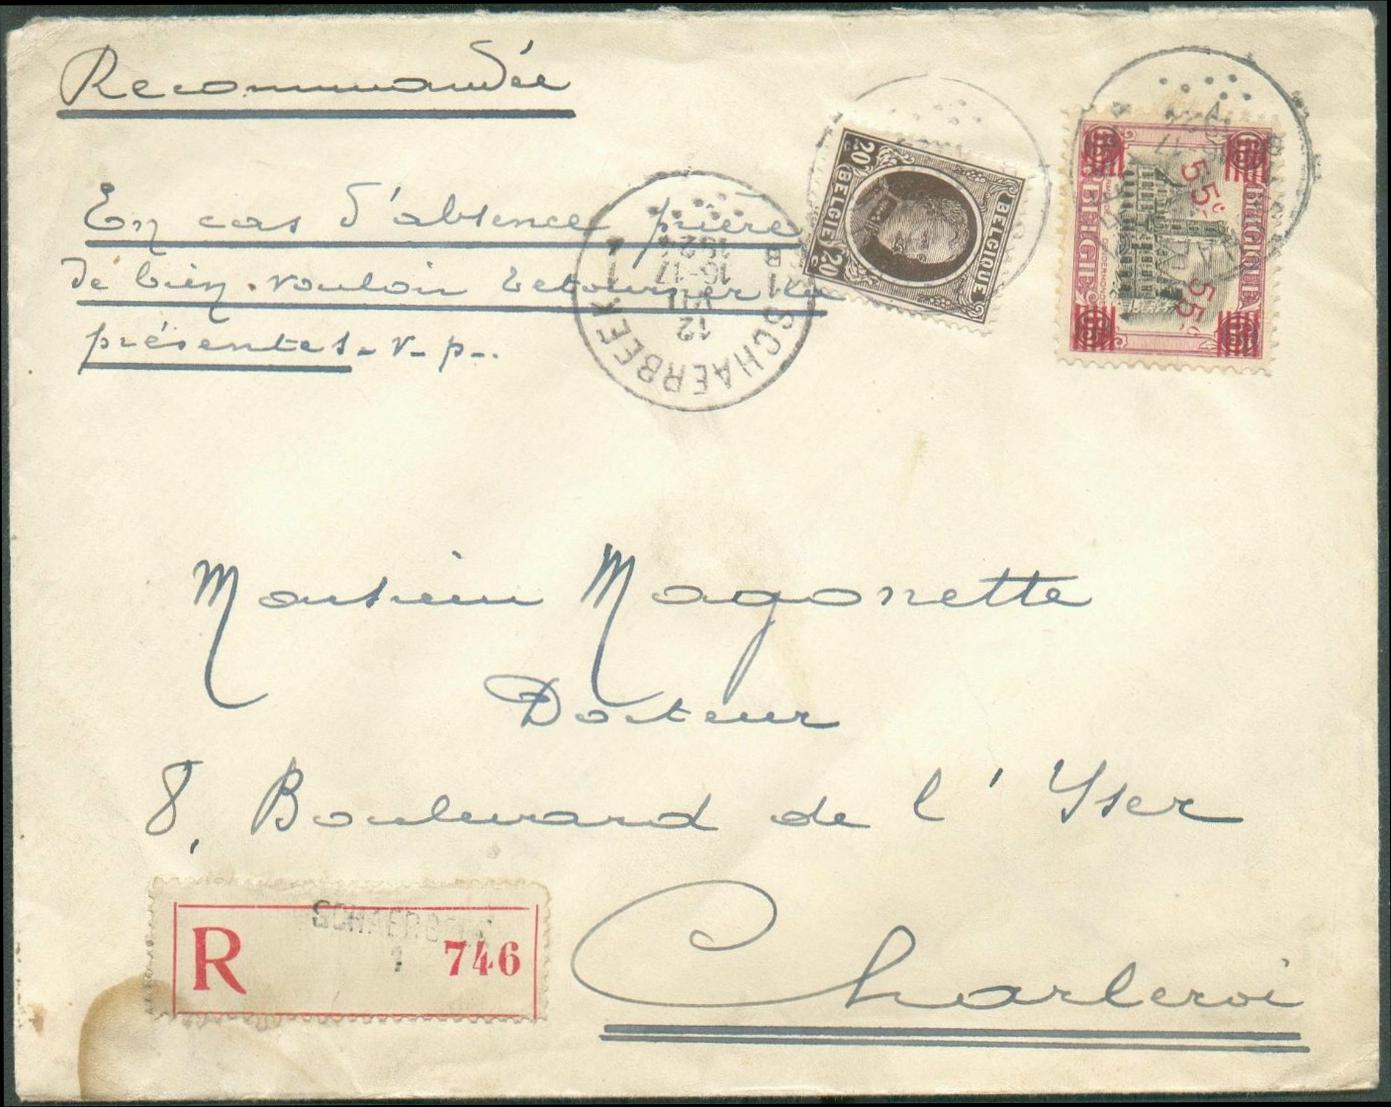 Recommandée
En cas d'absence prière
de bien vouloir retourner la
présente s.v.p.
20c BELGIE 20c BELGIQUE
55c 55c
BELGIË BELGIQUE
1 SCHAERBEEK 1
B
12
VII
16-17
1924
Monsieur Magonette
Docteur
8, Boulevard de l'Yser
Charleroi
SCHAERBEEK
R 1 746